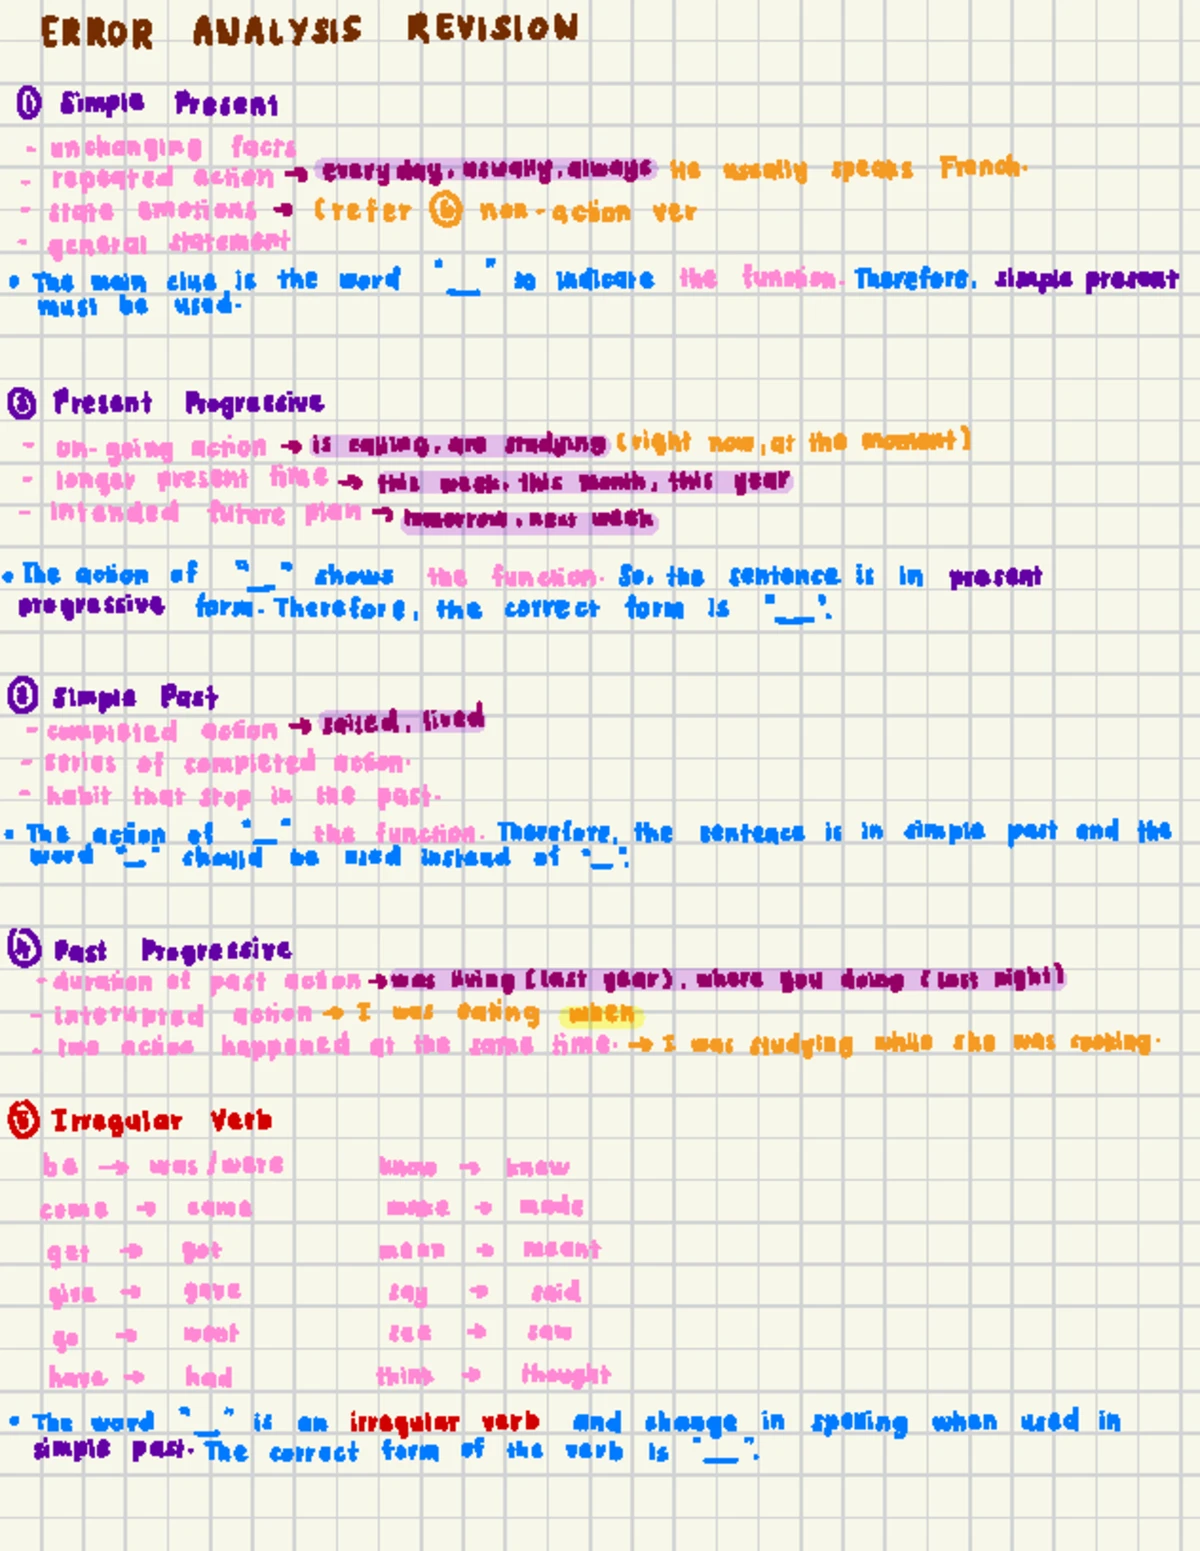 ERROR ANALYSIS REVISION
① Simple Present
- unchanging facts
- repeated action → everyday, usually, always He usually speaks French.
- state emotions → (refer ⑥ non-action ver
- general statement
• The main clue is the word "__" to indicate the function. Therefore, simple present
must be used.
② Present Progressive
- on-going action → is , are studying (right now, at the moment)
- longer present time → this week, this month, this year
- intended future plan → tomorrow, next week
• The action of "__" shows the function. So, the sentence is in present
progressive form. Therefore, the correct form is "__".
③ Simple Past
- completed action → , lived
- series of completed action.
- habit that stop in the past.
• The action of "__" the function. Therefore, the sentence is in simple past and the
word "__" should be used instead of "__".
④ Past Progressive
- duration of past action → was living (last year), where you doing (last night)
- interupted action → I was eating when
- two action happened at the same time. → I was studying while she was cooking.
⑤ Irregular Verb
be → was/were know → knew
come → came make → made
get → got mean → meant
give → gave say → said
go → went see → saw
have → had think → thought
• The word "__" is an irregular verb and change in spelling when used in
simple past. The correct form of the verb is "__".